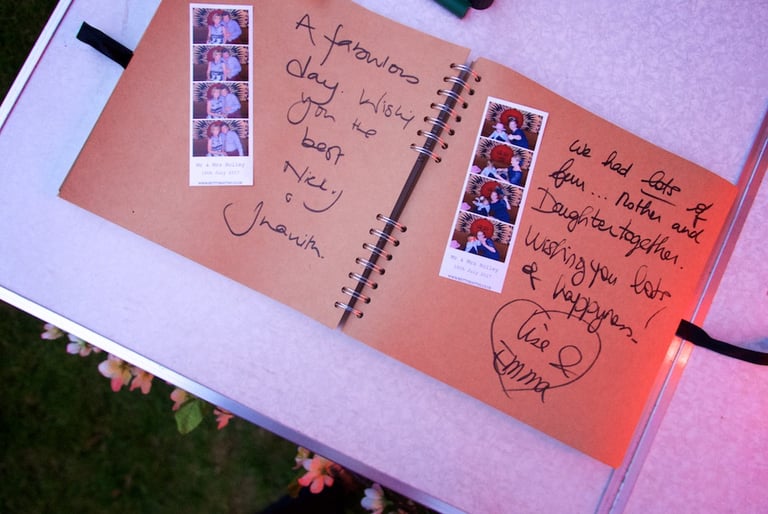 A fabulous
day. Wishing
you the
best
Nicky
&
Mr & Mrs Bolley
15th July 2017
we had lots of
fun... Mother and
Daughter together.
Wishing you lots
of happyness!
Lise &
Emma
Mr & Mrs Bolley
15th July 2017